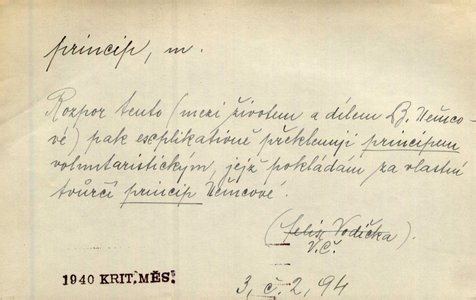 princip, m.
Rozpor tento (mezi životem a dílem B. Němco-
vé) pak explikativně překlenuji principem
voluntaristickým, jejž pokládám za vlastní
tvůrčí princip Němcové.
(Felix Vodička).
V.Č.
1940 KRIT. MĚS.
3, č. 2, 94